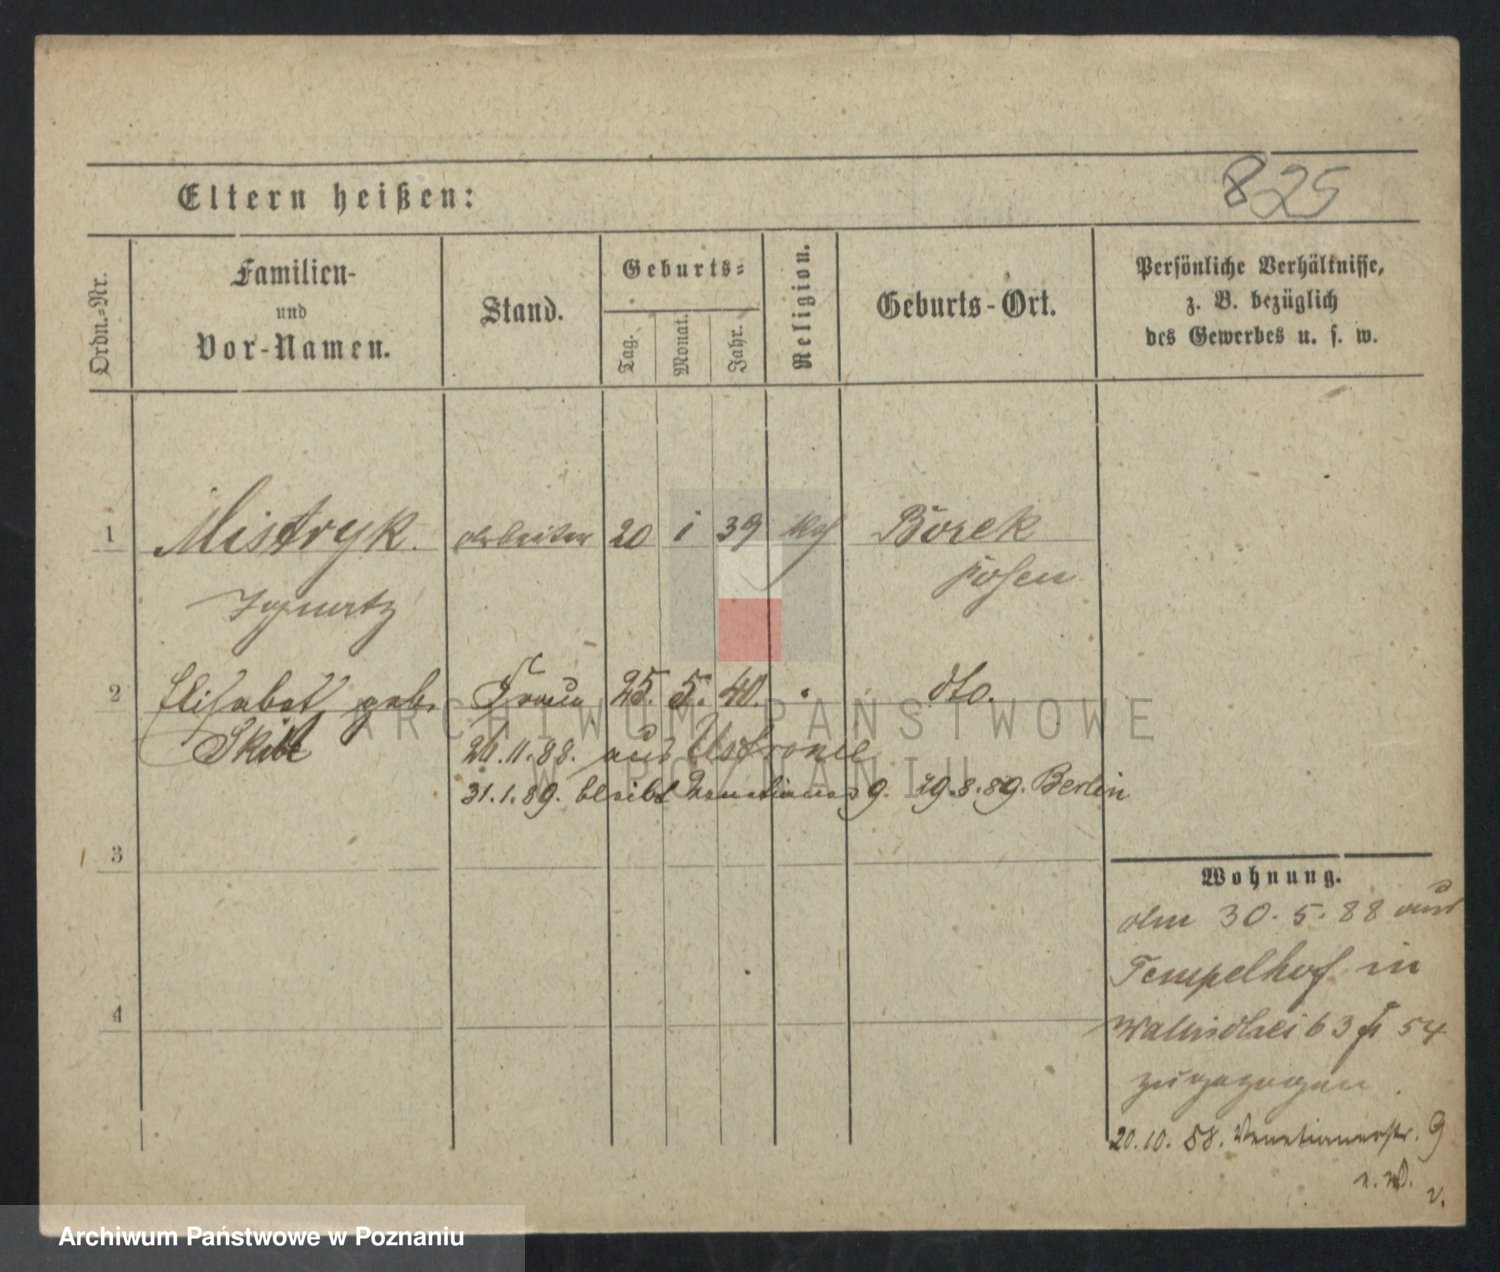 825
Eltern heißen:
Ordn.-Nr.
Familien-
und
Vor-Namen.
Stand.
Geburts-
Tag.
Monat.
Jahr.
Religion.
Geburts-Ort.
Persönliche Verhältnisse,
z. B. bezüglich
des Gewerbes u. s. w.
1 Mistryk. Arbeiter 20 1 39 kath Borek
Ignatz Posen
2 Elisabet geb. Frau 25. 5. 40. dto.
Skibe 20.11.88. aus
31.1.89. bleibt Venetianers 9. 29.8.89. Berlin
3
4
Wohnung.
Am 30.5.88 aus
Tempelhof in
Wallischei 63 54
zugezogen
20.10.88. Venetianerstr. 9
v.
ARCHIWUM PAŃSTWOWE
W POZNANIU
Archiwum Państwowe w Poznaniu